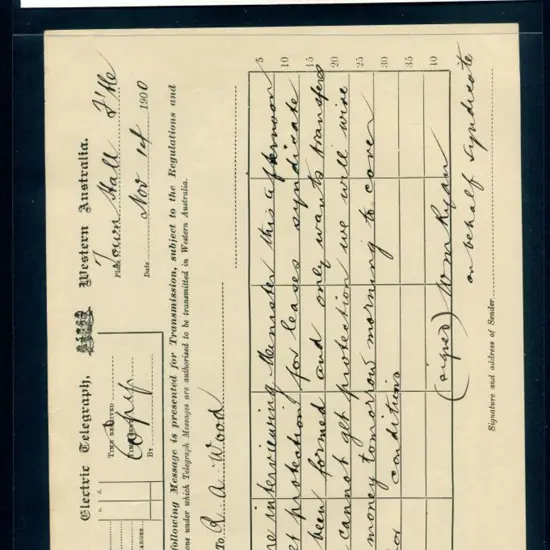 Electric Telegraph, Western Australia.
Place Town Hall F'tle
Date Nov 14 1900
TIME RECEIVED
Copy
By
following Message is presented for Transmission, subject to the Regulations and
ons under which Telegraph Messages are authorised to be transmitted in Western Australia.
To R A Wood
ne interviewing Minister this afternoon 5
et protection for leases syndicate 10
been formed and only wants transfers 15
cannot get protection we will wire 20
money tomorrow morning to cover 25
conditions 30
35
(signed) Wm Ryan 40
on behalf syndicate
Signature and address of Sender